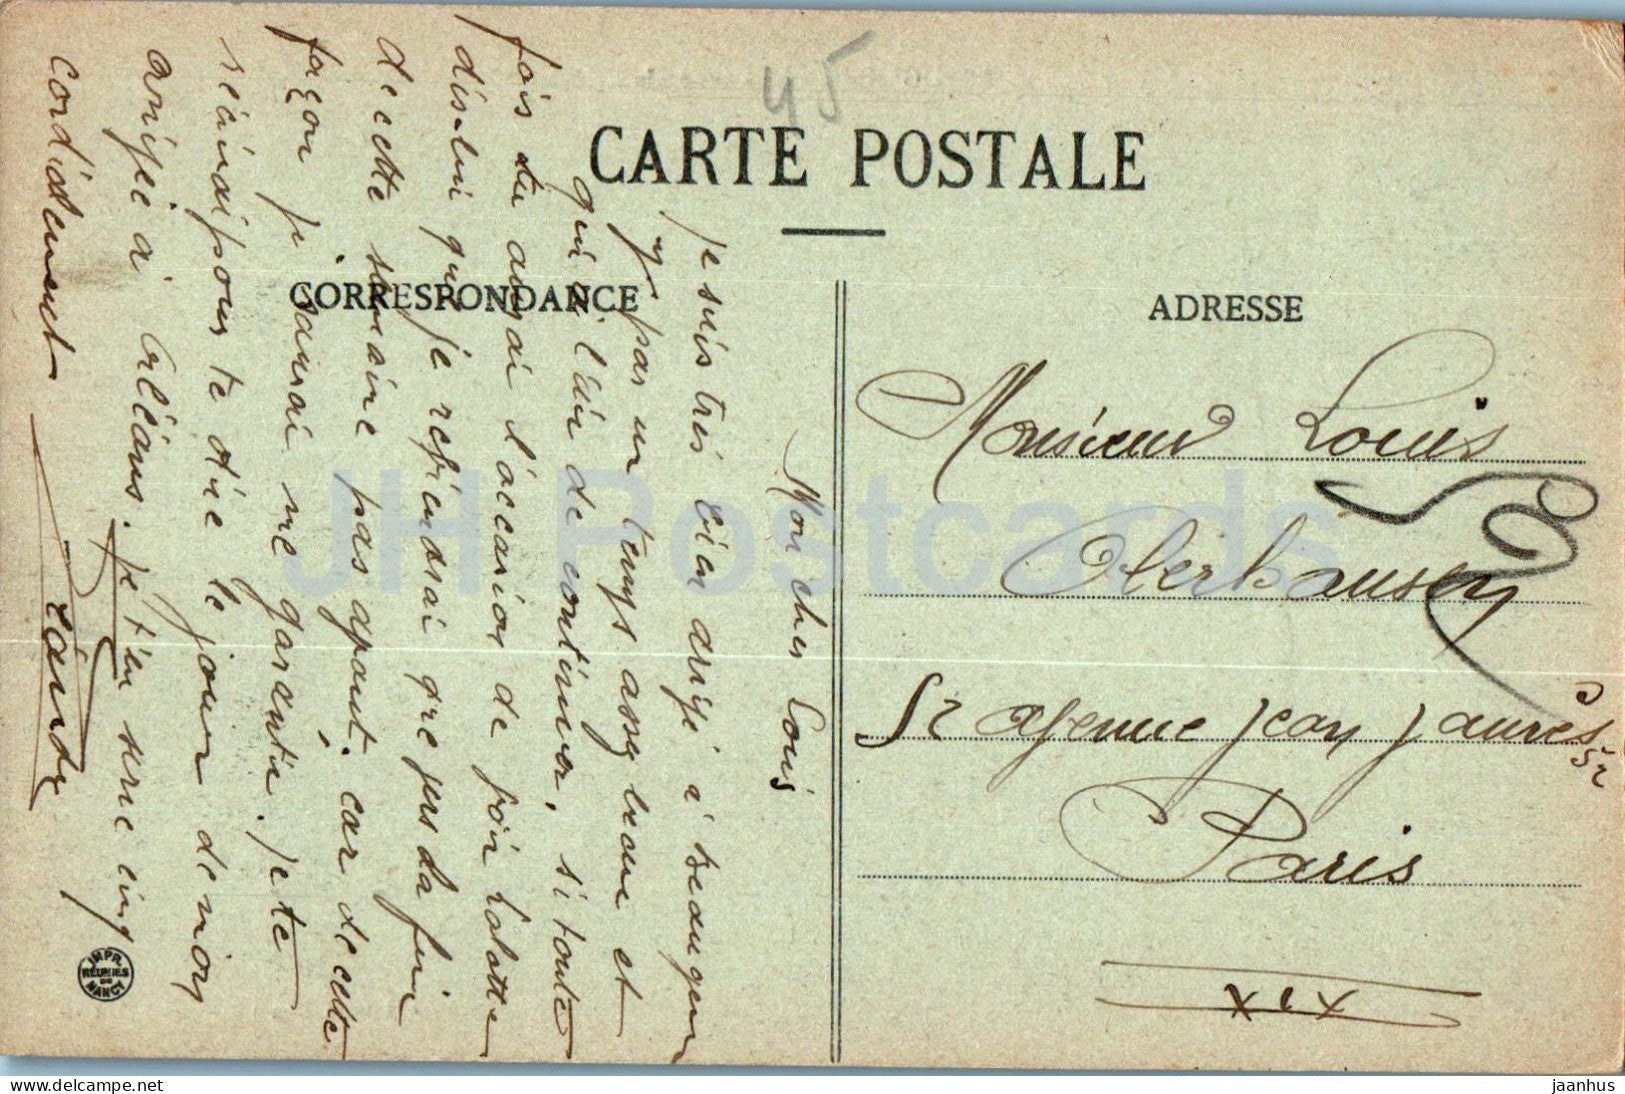 45
CARTE POSTALE
CORRESPONDANCE
ADRESSE
Mon cher Louis
je suis très bien arrijé à Beaugen
y par un temps assez beau et
qui a l'air de continuer, si toute
fois tu avrai l'occasion de foir
dis-lui que je refiendrai que
de cette semaine pas apant, car de cette
façon je saurai me garantir. Je te
réäuais pour te dire le jour de mon
arrijée à Orléans. je t'en serre cinq
cordialement
Monsieur Louis
Oberhausen
52 afenue Jean Jaurès
52
Paris
XIX
IMPR.
REUNIES
DE
NANCY
JH Postcards
www.delcampe.net
jaanhus